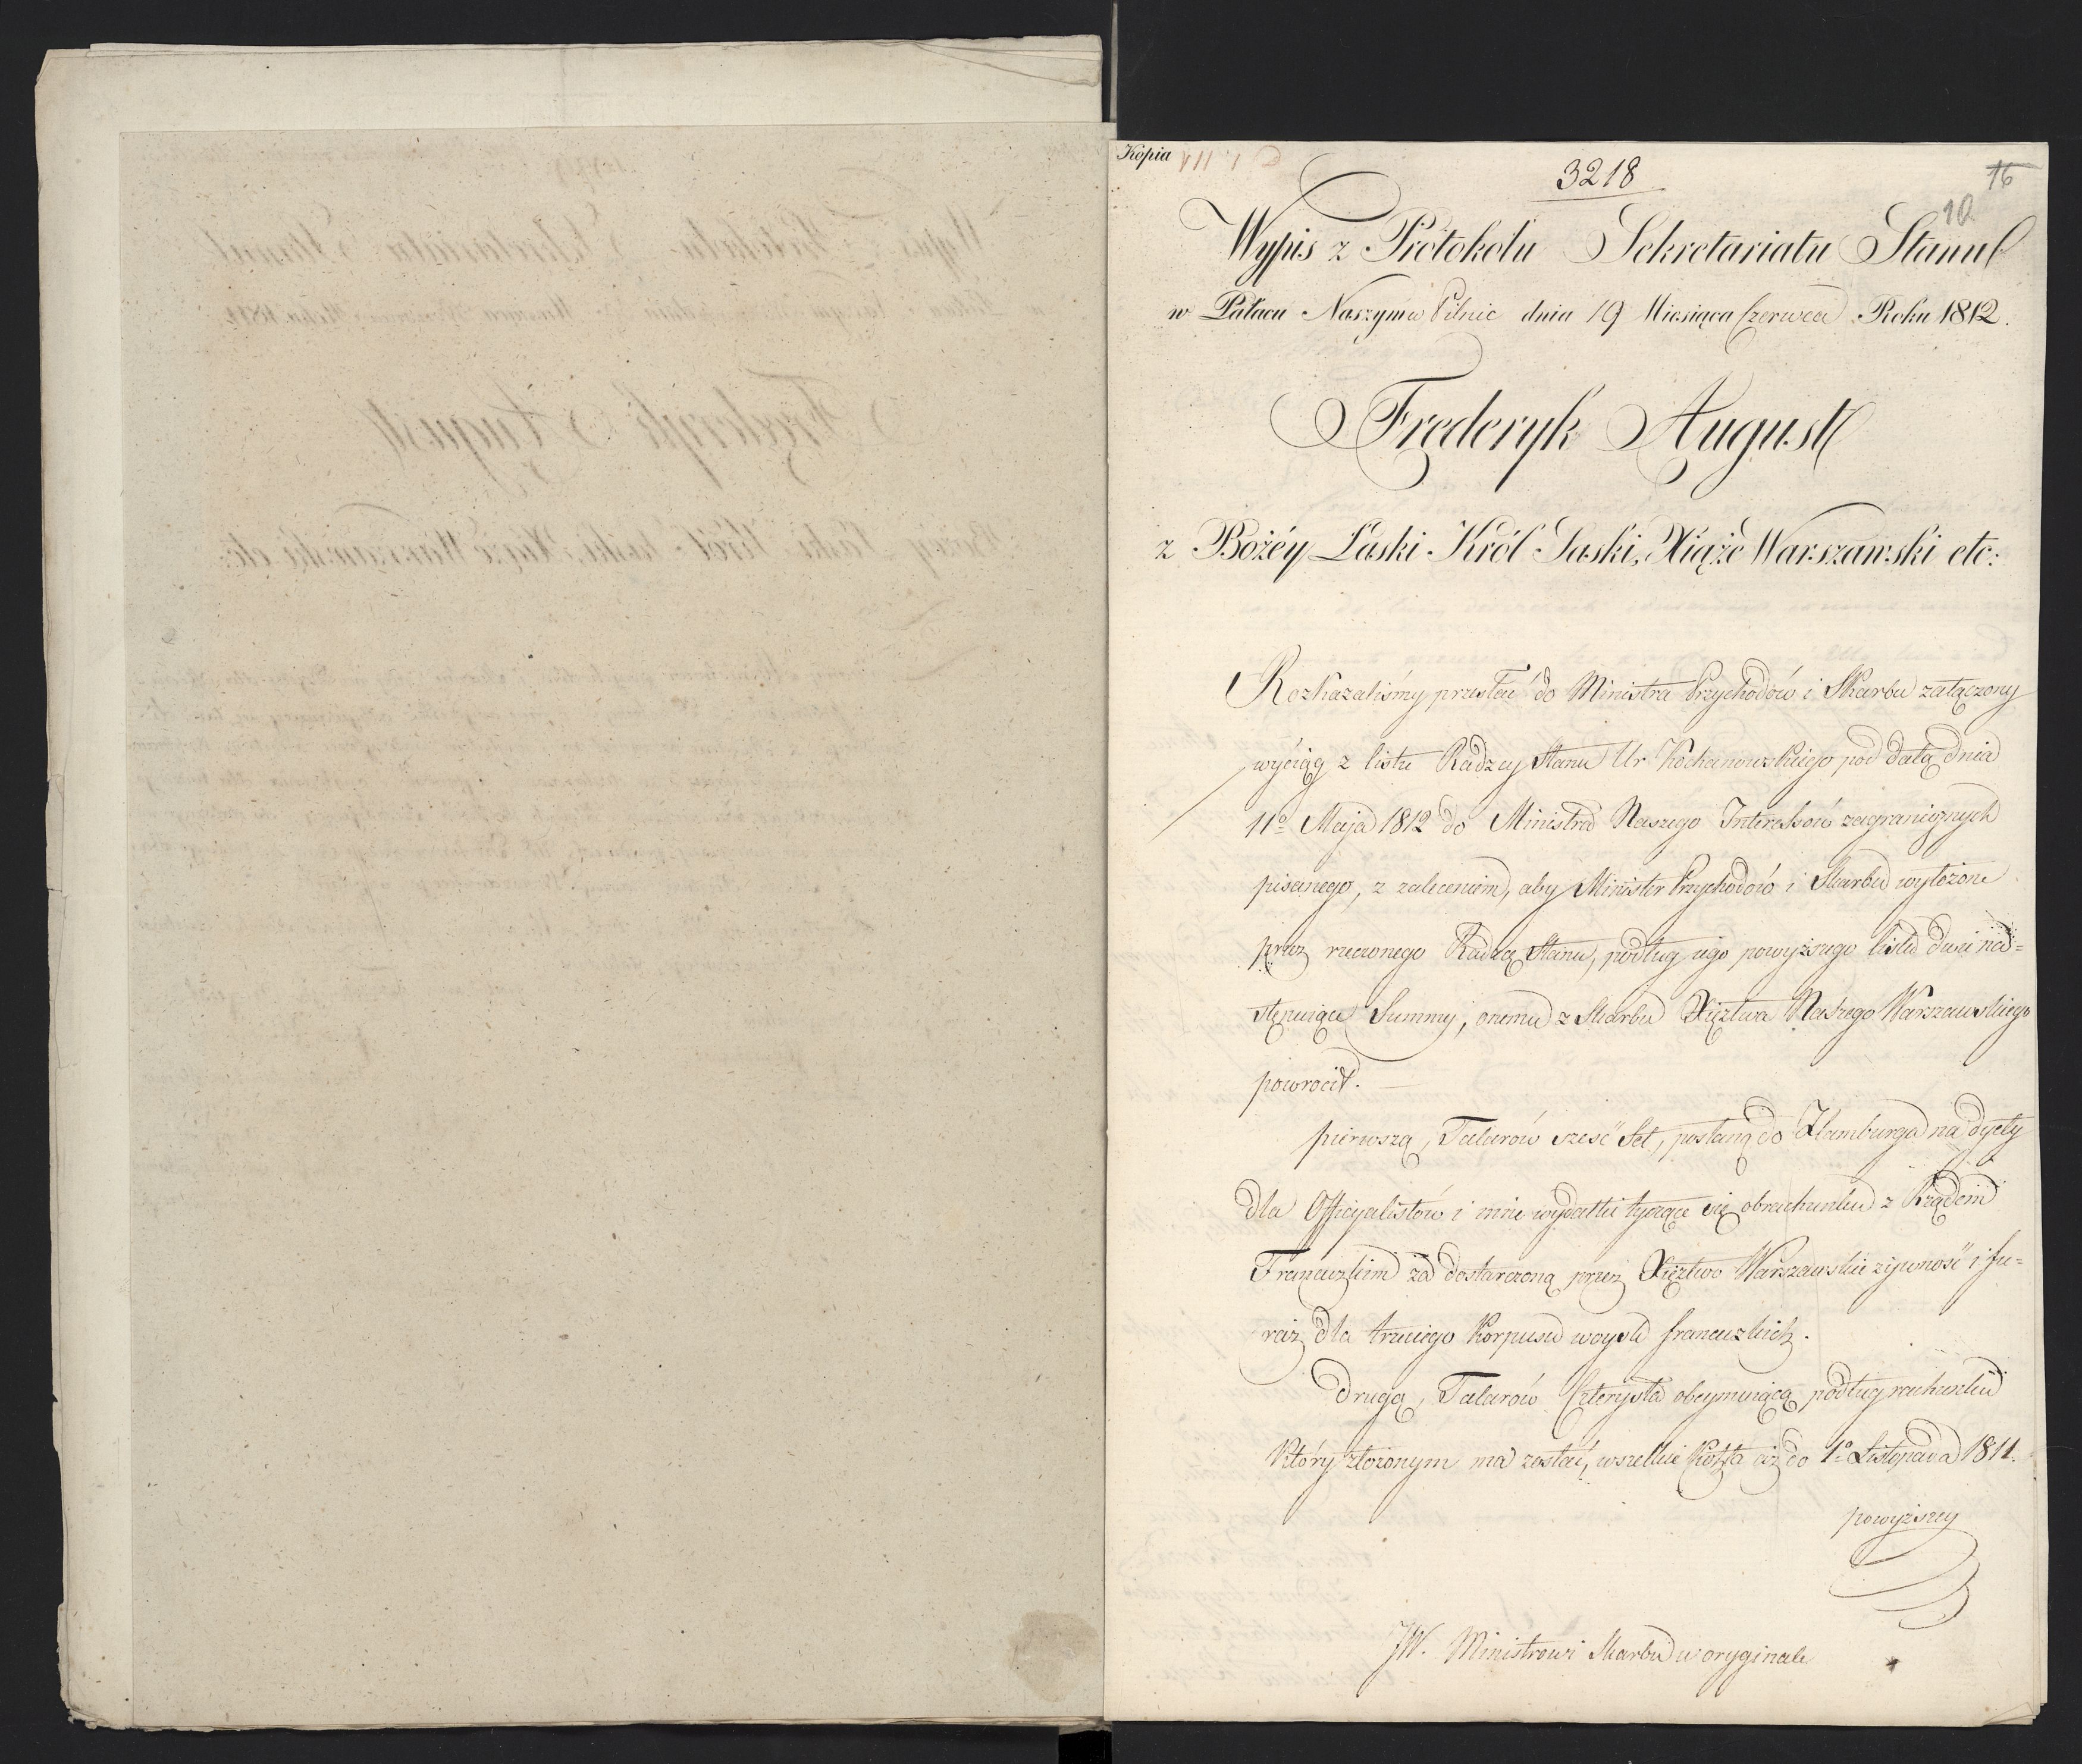 Kopia
3218
16
10
Wypis z Protokołu Sekretariatu Stanu
w Pałacu Naszym w Pilnic dnia 19 Miesiąca Czerwca Roku 1812.
Frederyk August
z Bożéy Łaski Król Saski, Xiąże Warszawski etc:
Rozkazaliśmy przesłać do Ministra Przychodów i Skarbu załączony
wyciąg z listu Radzcy Stanu Ur Kochanowskiego pod datą dnia
11º Maja 1812 do Ministra Naszego Interessów zagranicznych
pisanego, z zaleceniem, aby Minister Przychodów i Skarbu wyłożone
przez rzeczonego Radzcę Stanu, podług iego powyższego listu dwie na=
stępuiące Summy, onemu z Skarbu Xięztwa Naszego Warszawskiego
powrocił.
pierwszą, Talarów sześć Set, posłaną do Hamburga na dyety
dla Officyalistów i inne wydatki tyczące się obrachunku z Rządem
Francuzkim za dostarczoną przez Xięztwo Warszawskie żywność i fu=
raż dla trzeciego Korpusu woysk francuzkich.
drugą, Talarów Czterysta obeymuiącą, podług rachunku
który złożonym ma zostać, wszelkie Koszta aż do 1º Listopada 1811.
powyższey
JW. Ministrowi Skarbu w oryginale